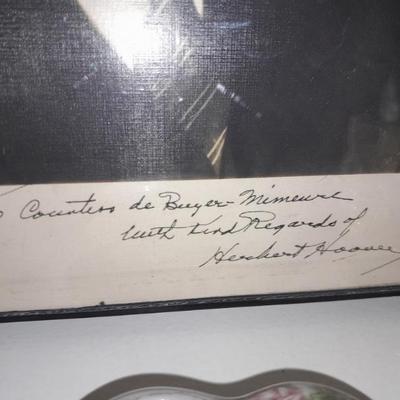 Countess de Buyer-Mimeure
with kind Regards of
Herbert Hoover